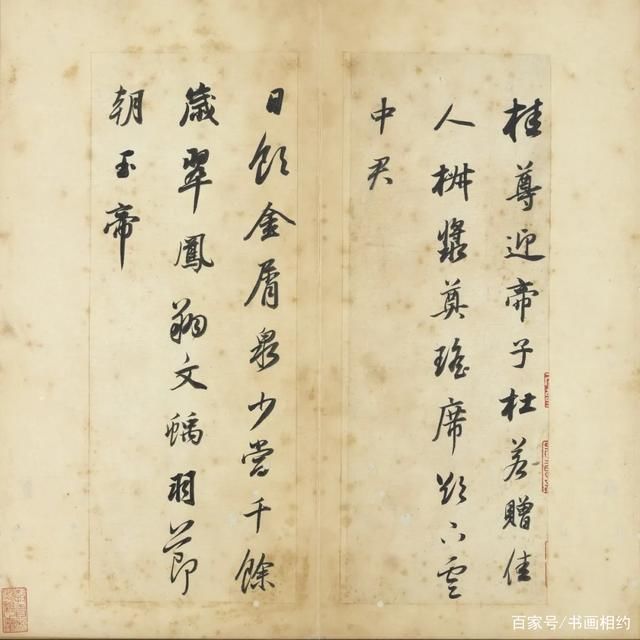 桂尊迎帝子杜若贈佳
人椒漿奠瑤席欲下雲
中君
日飲金屑泉少當千餘
歲翠鳳翔文螭羽節
朝玉帝
百家号/书画相约